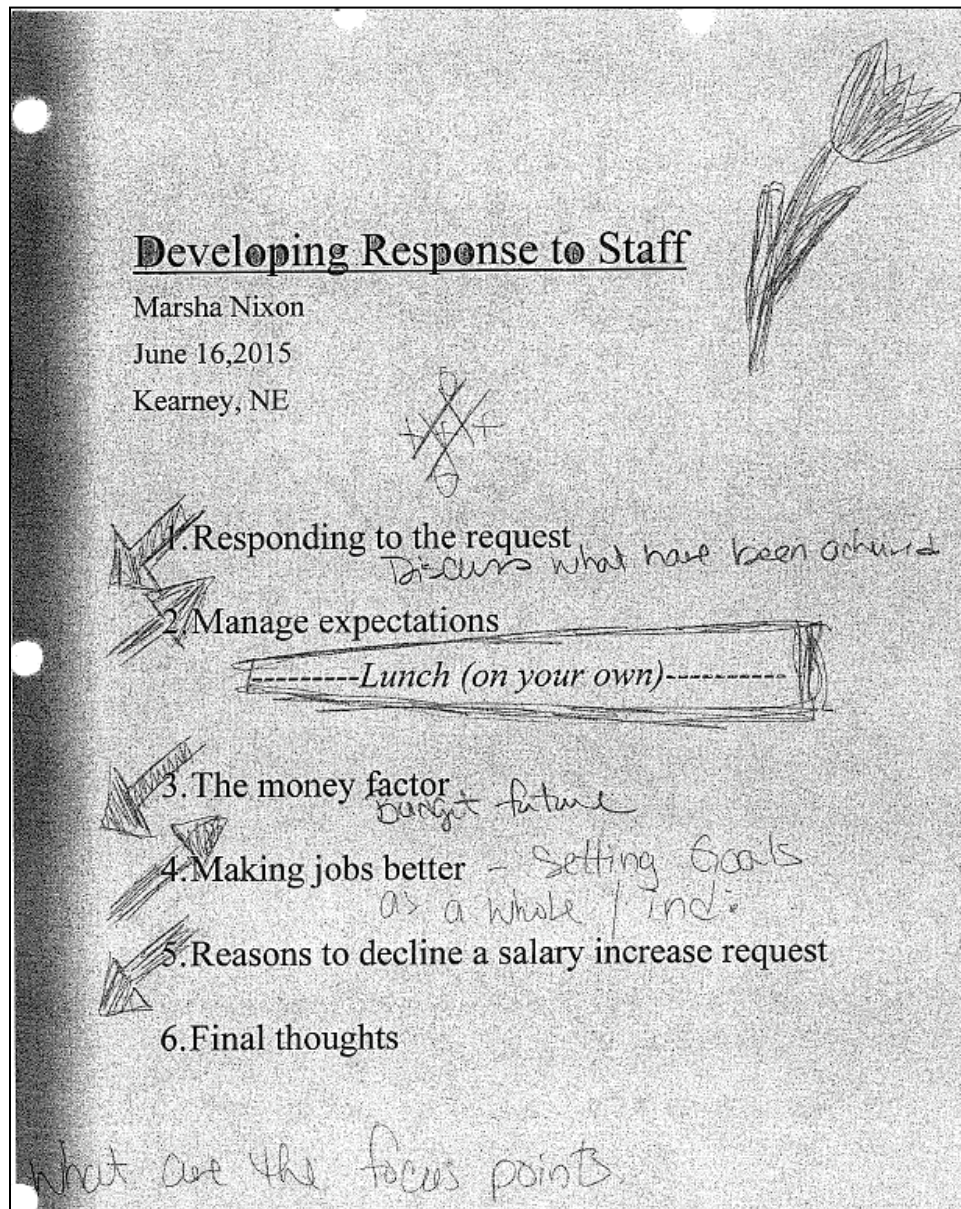 Developing Response to Staff
Marsha Nixon
June 16,2015
Kearney, NE
1.Responding to the request
Discuss what have been achieved
2.Manage expectations
---------Lunch (on your own)----------
3.The money factor
budget future
4.Making jobs better - Setting Goals
as a whole / ind.
5.Reasons to decline a salary increase request
6.Final thoughts
What are the focus points